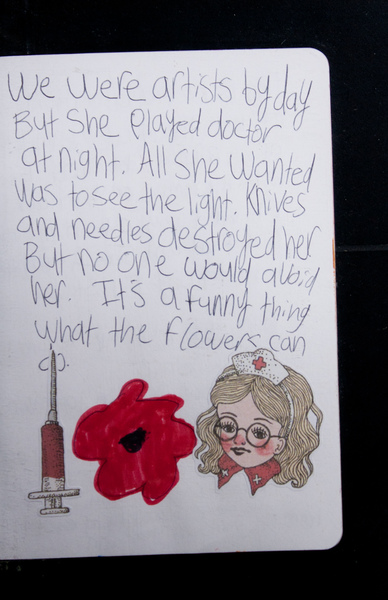 We were artists by day
But she played doctor
at night. All she wanted
was to see the light. Knives
and needles destroyed her
But no one would avoid
her. It's a funny thing
what the flowers can
do.